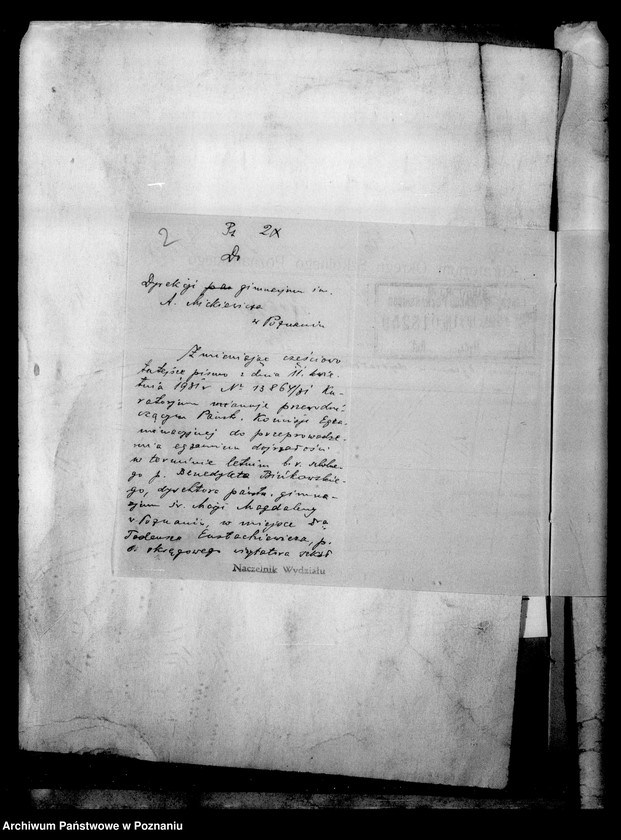 2
Pz 2x
Do
Dyrekcji gimnazjum im.
A. Mickiewicza
w Poznaniu
Zmieniając częściowo
tutejsze pismo z dnia 11. kwie-
tnia 1931 r № 13864/31 Ku-
ratorjum mianuje przewodni-
czącym Państ. Komisji Egza-
minacyjnej do przeprowadze-
nia egzaminu dojrzałości
w terminie letnim b.r. szkolne-
go p. Benedykta
go, dyrektora państw. gimna-
zjum św. Marji Magdaleny
w Poznaniu, w miejsce Dra
Tadeusza Eustachiewicza, p.
o. okręgowego wizytatora szkół
Naczelnik Wydziału
Archiwum Państwowe w Poznaniu